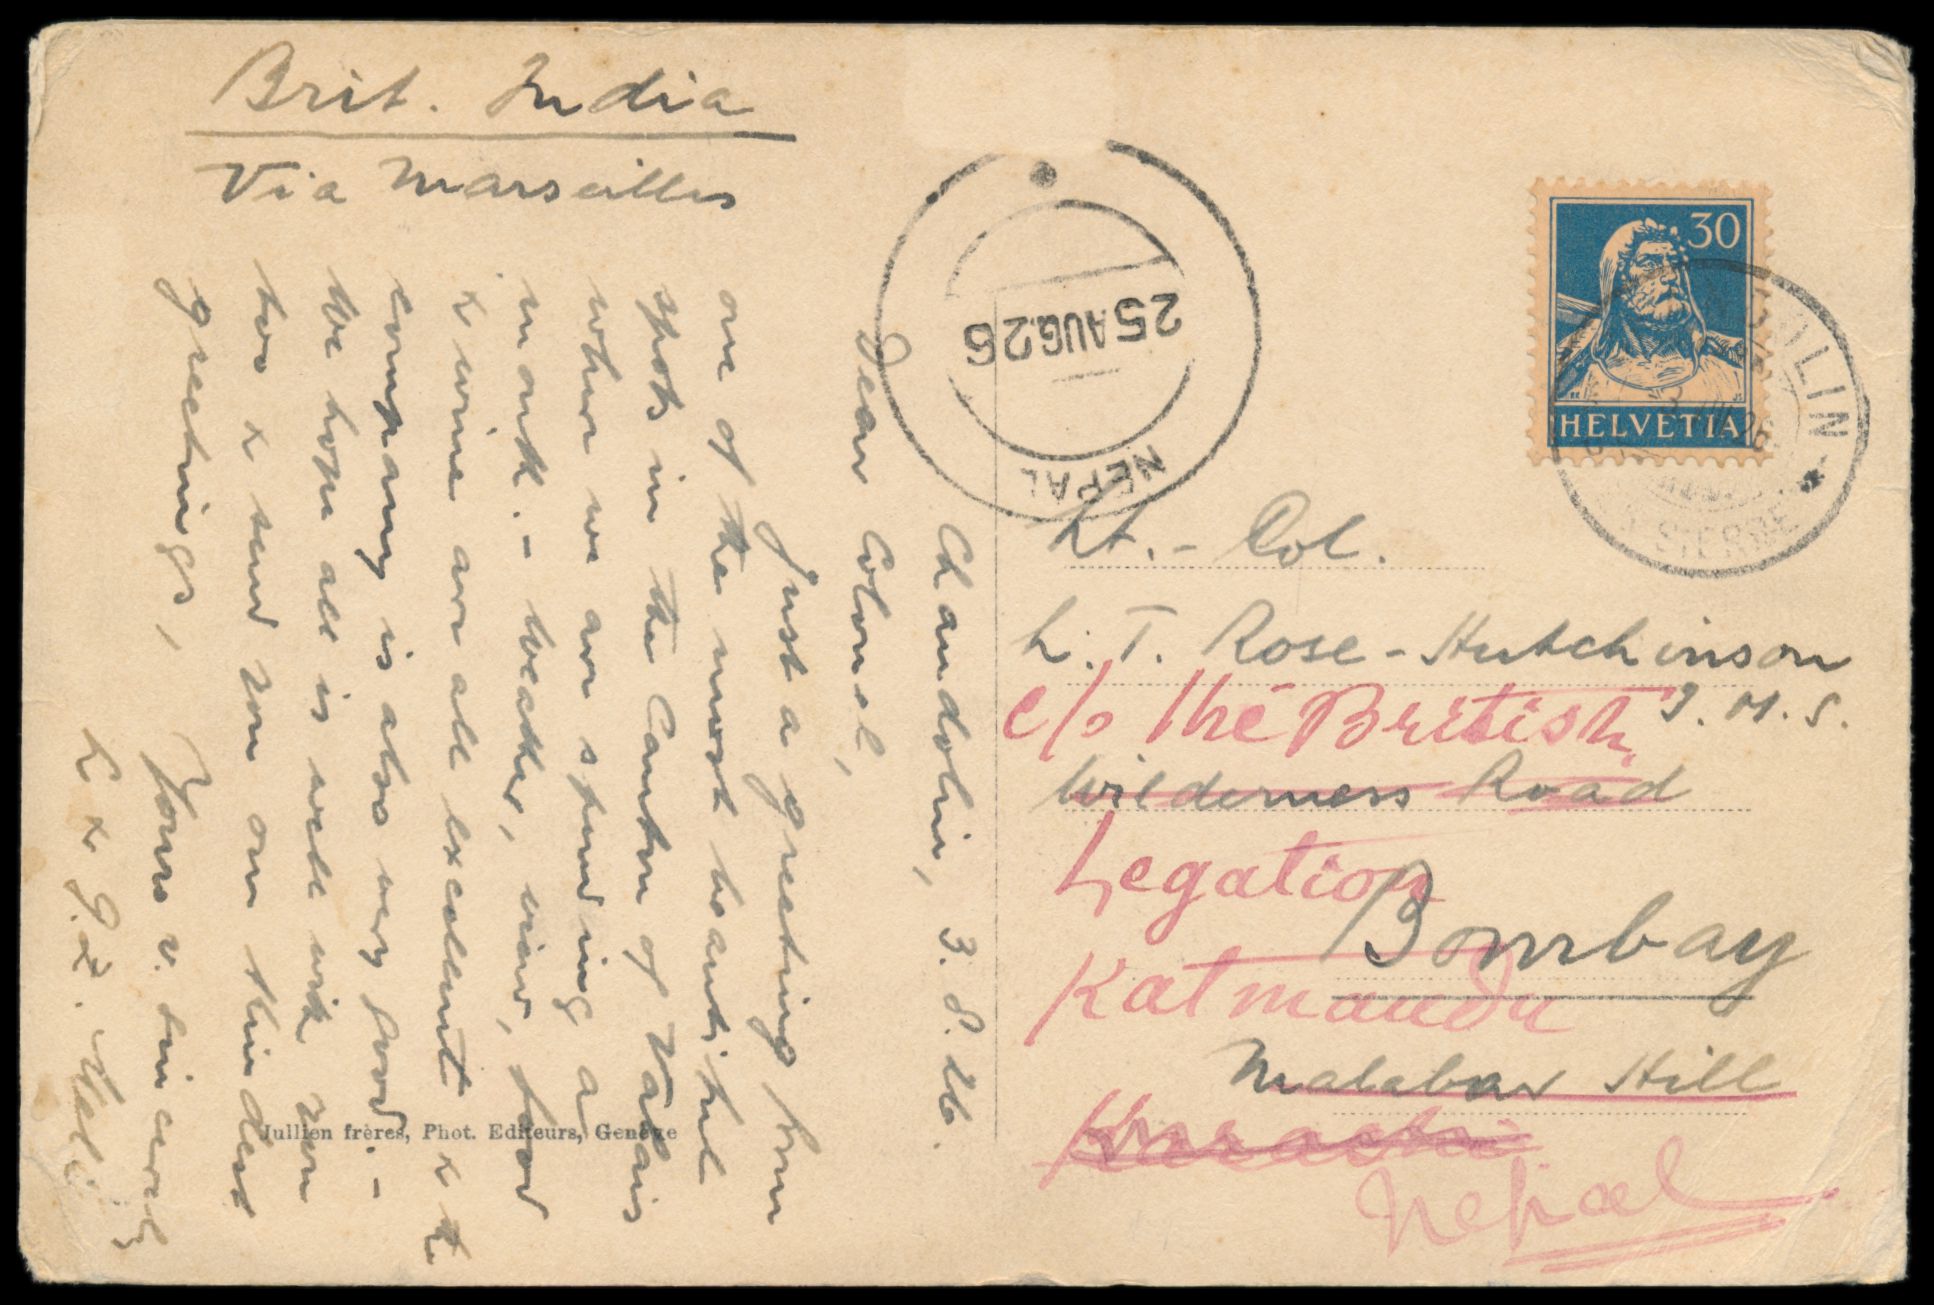 Brit. India
Via Marseilles
Chandolin, 3. 8. 26.
Dear Colonel,
Just a greeting from
one of the most beautiful
spots in the Canton of Valais
where we are spending a
month. - Weather, view, food
& wine are all excellent & the
company is also very good. -
We hope all is well with you
too & send you our kindest
greetings,
Yours v. sincerely
Jullien frères, Phot. Editeurs, Genève
NEPAL
25 AUG. 26
30
HELVETIA
SIERRE
Lt. - Col.
L. T. Rose - Hutchinson
I. M. S.
c/o The British
Wilderness Road
Legation
Bombay
Katmandu
Malabar Hill
Karachi
Nepal